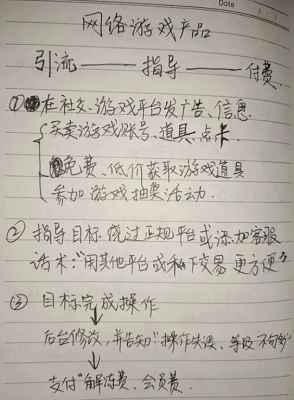 Date
网络游戏产品
引流——指导——付费
①在社交、游戏平台发广告、信息.
买卖游戏账号、道具、点卡
免费、低价获取游戏道具
参加游戏抽奖活动.
② 指导目标绕过正规平台或添加客服
话术:"用其他平台或私下交易更方便"
③ 目标完成操作
后台修改,并告知"操作失误、等级不够"
支付"解冻费、会员费.